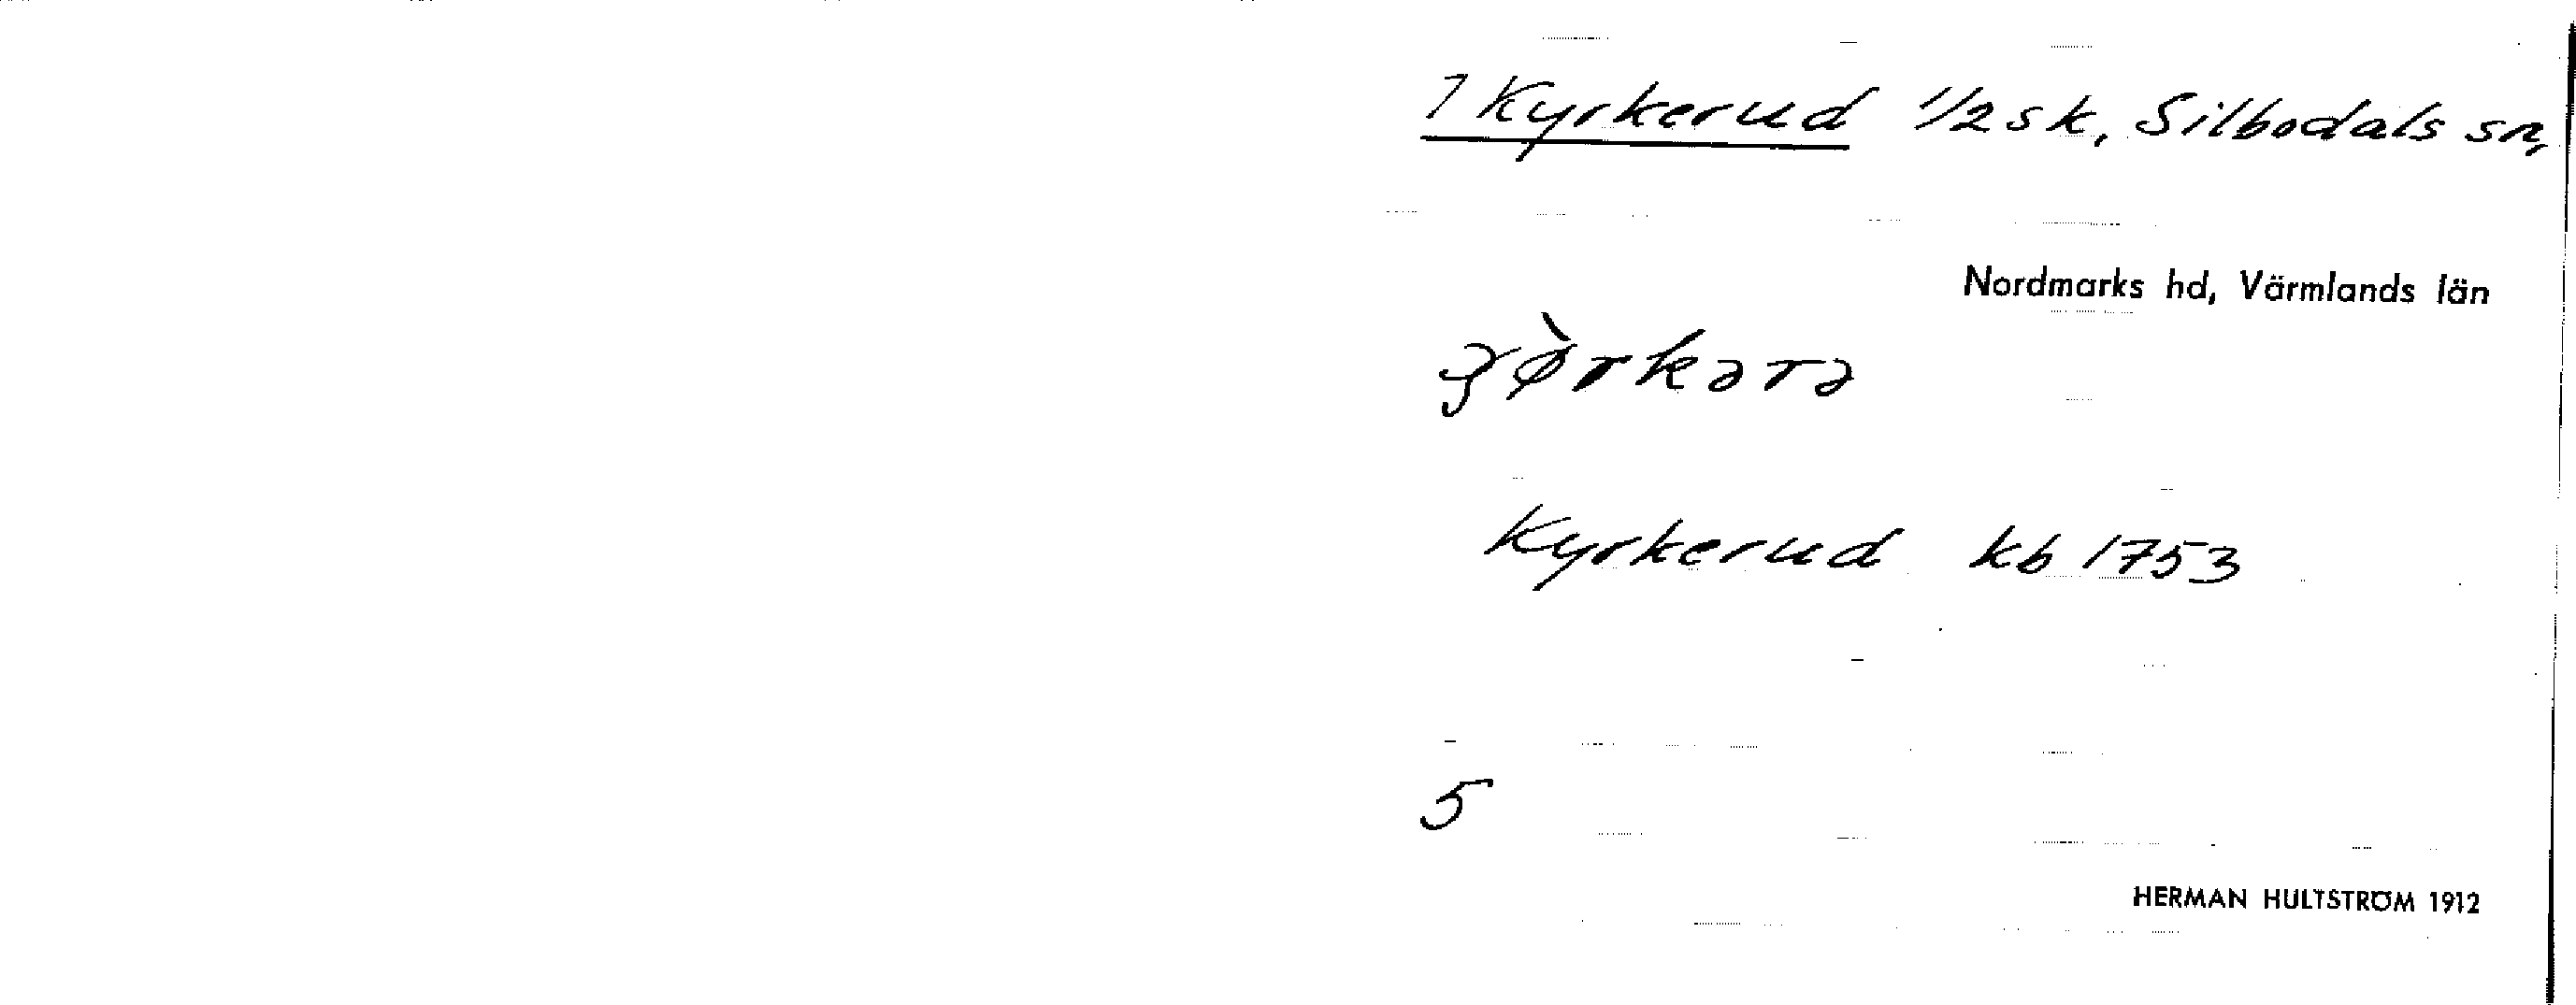 1 Kyrkerud 1/2 sk, Silbodals sn,
Nordmarks hd, Värmlands län
ʒø̀rkərə
Kyrkerud kb 1753
5
HERMAN HULTSTRÖM 1912